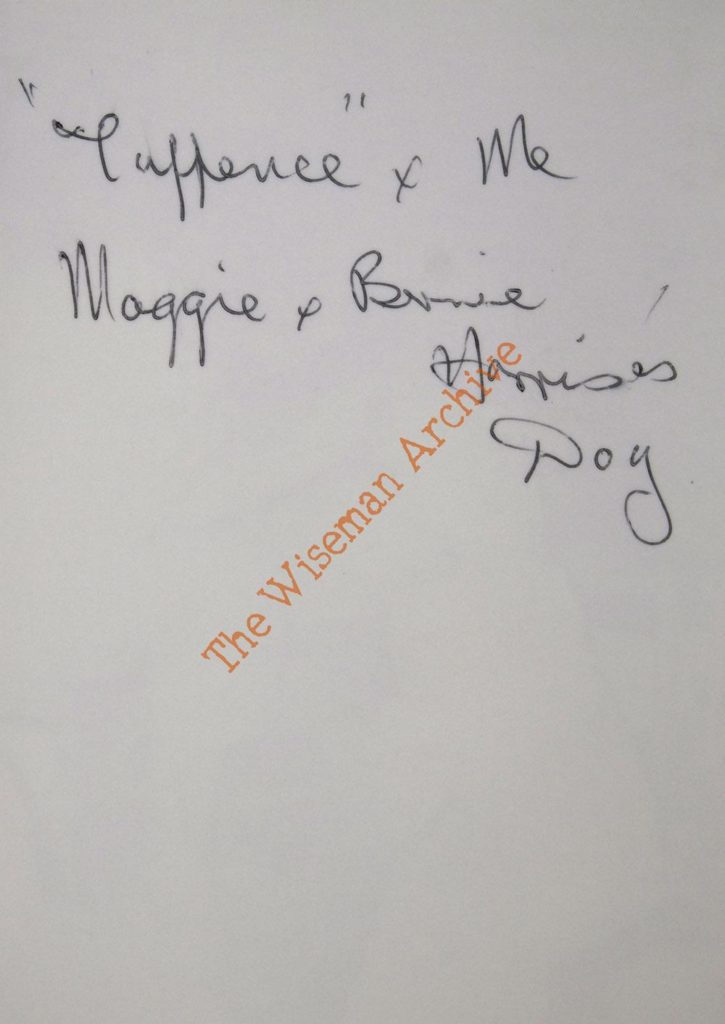 "Tuppence" x Me
Maggie x Bernie
Harrises'
Dog
The Wiseman Archive